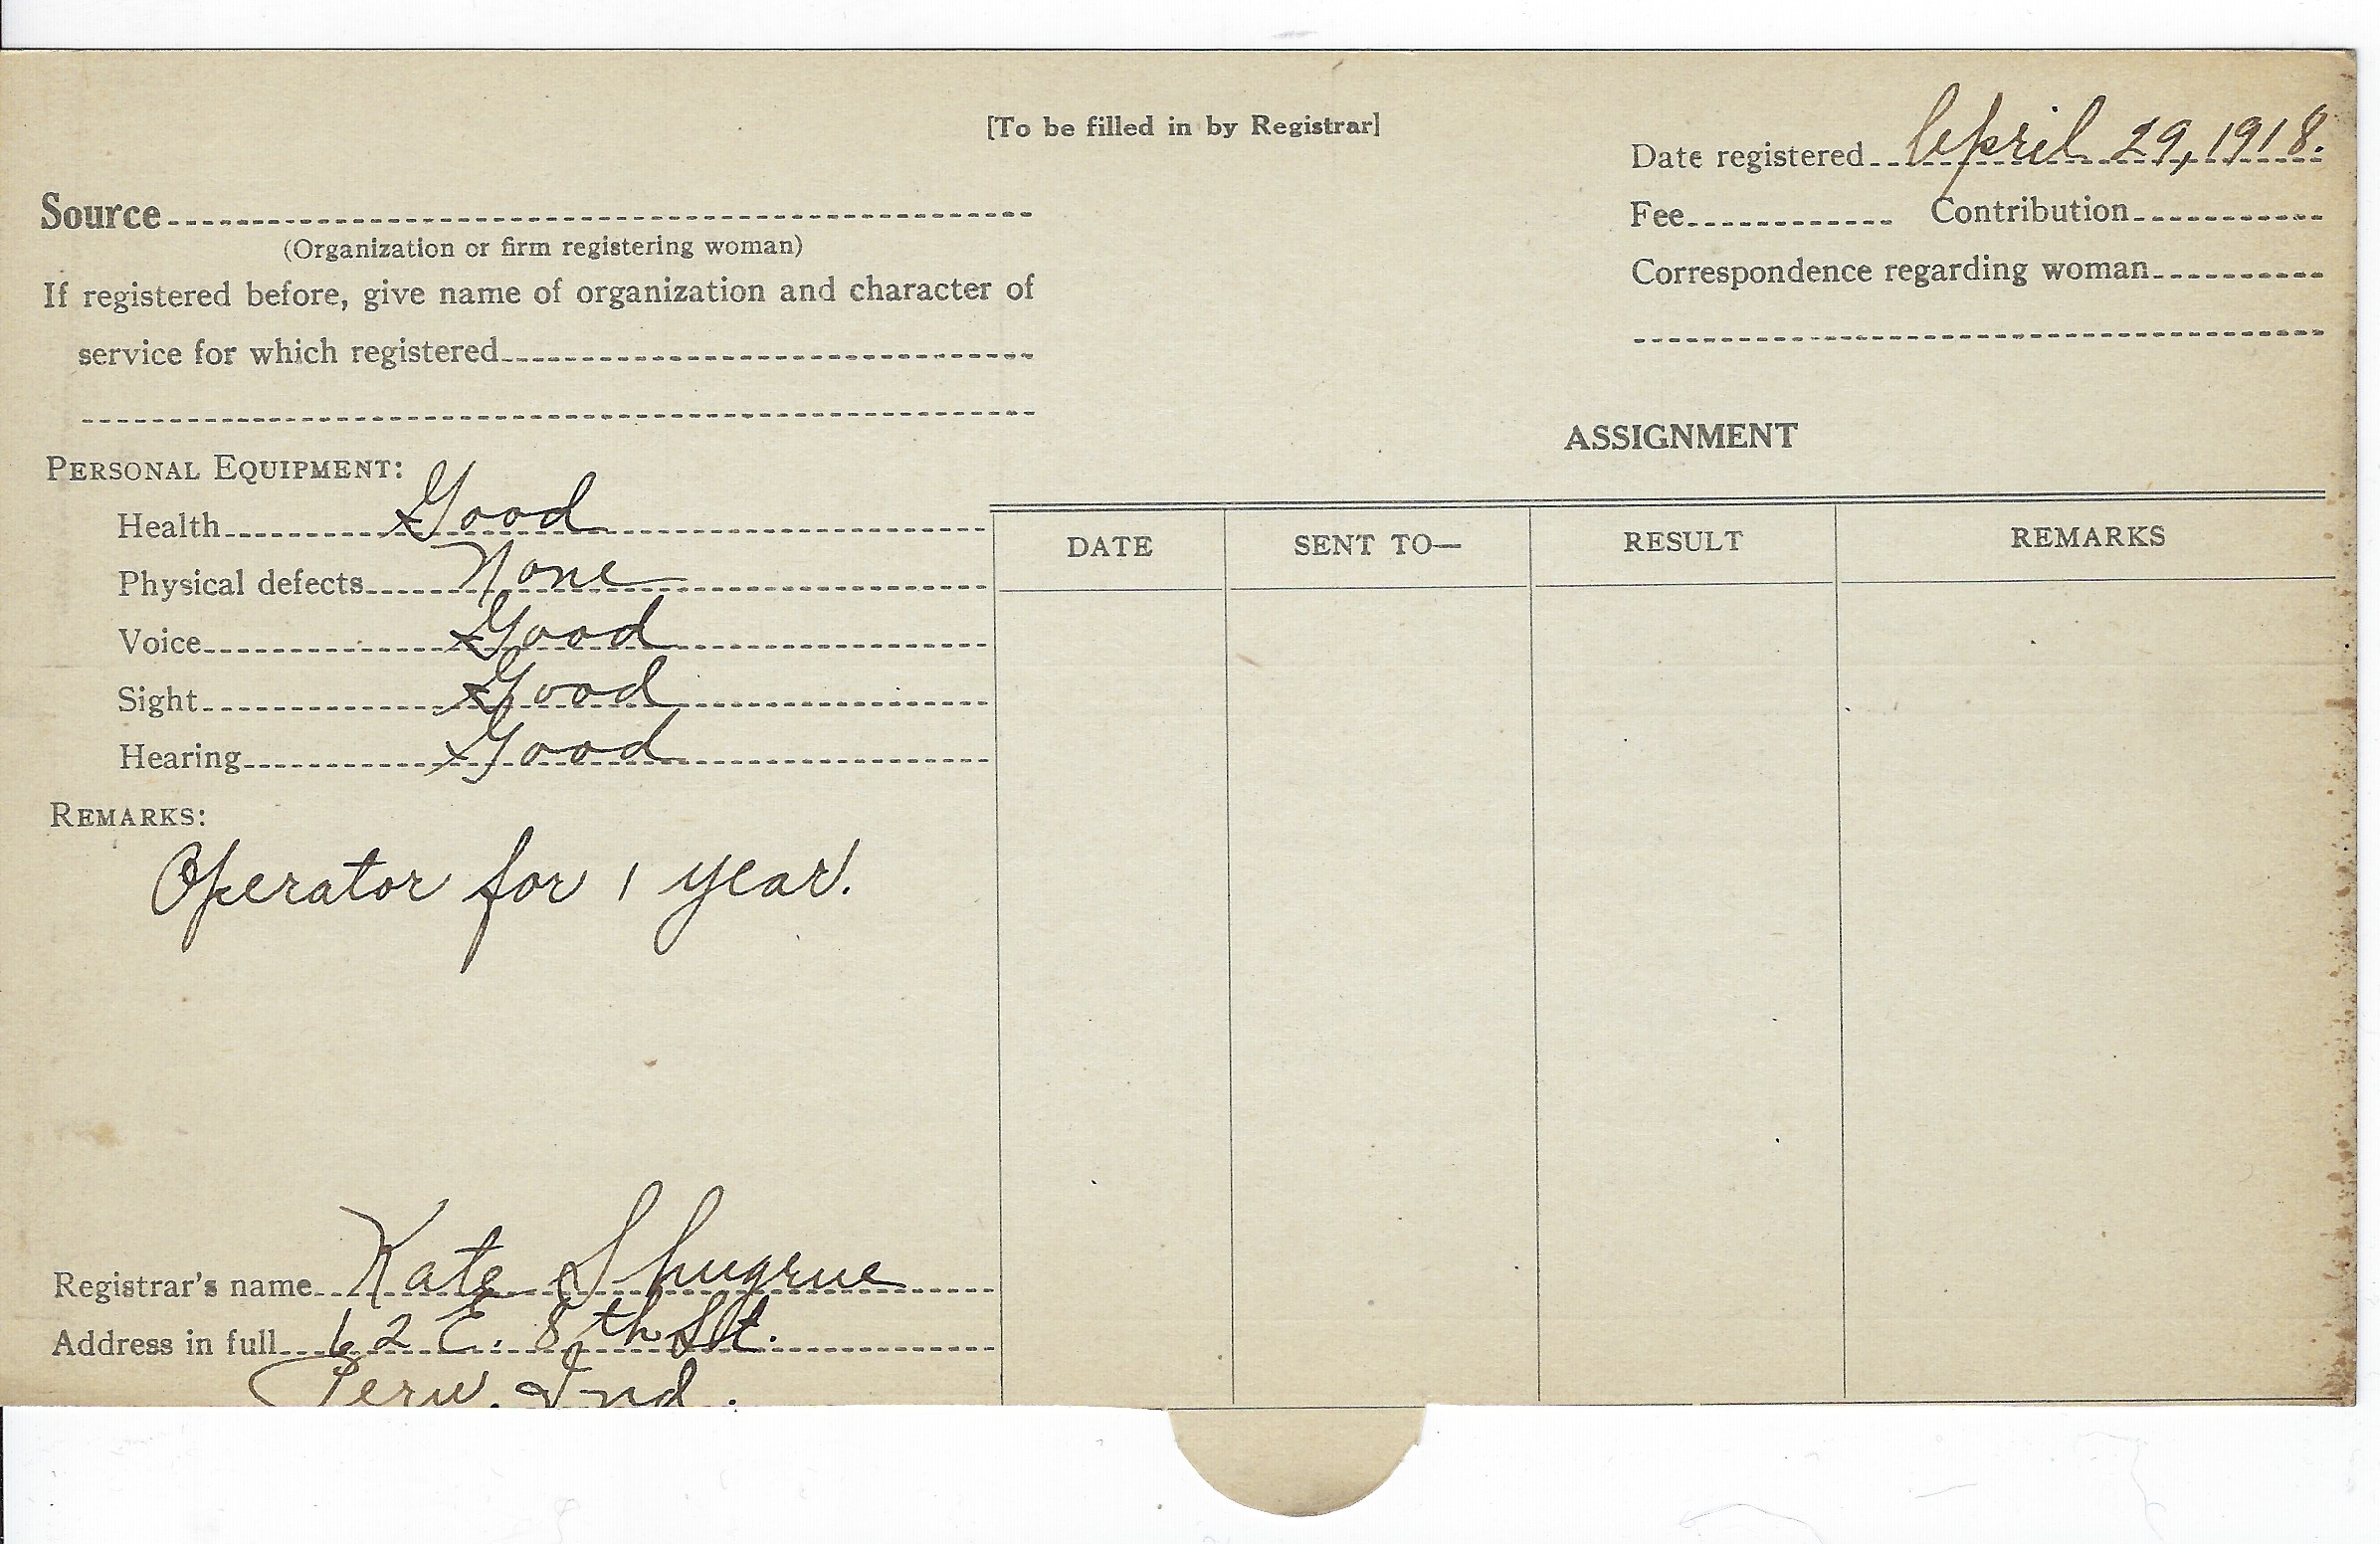 [To be filled in by Registrar]
Date registered April 29, 1918.
Source
(Organization or firm registering woman)
Fee Contribution
If registered before, give name of organization and character of
service for which registered
Correspondence regarding woman
ASSIGNMENT
PERSONAL EQUIPMENT:
Health Good
Physical defects None
Voice Good
Sight Good
Hearing Good
DATE SENT TO— RESULT REMARKS
REMARKS:
Operator for 1 year.
Registrar's name Kate Shugrue
Address in full 62 E. 8th St.
Peru, Ind.